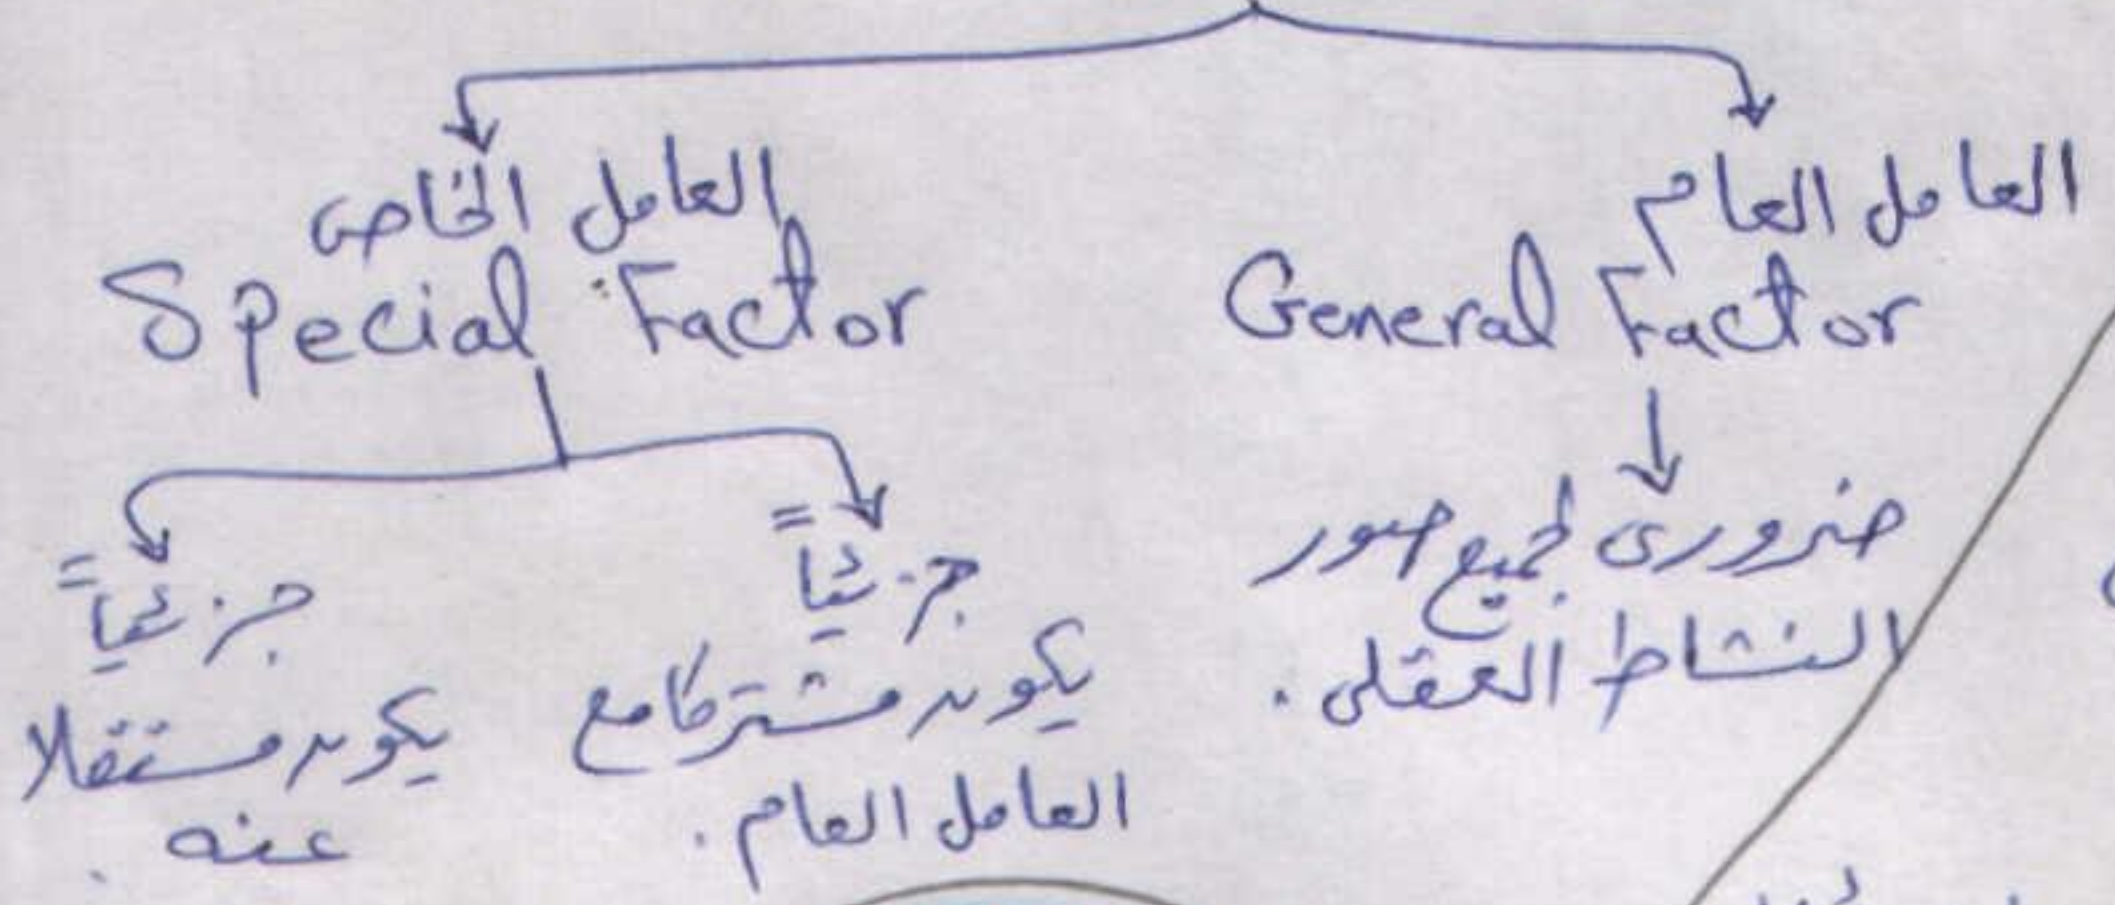 العامل العام
General Factor
ضرورى لجميع صور
النشاط العقلى .
العامل الخاص
Special Factor
جزئياً
يكون مشتركا مع
العامل العام .
جزئياً
يكون مستقلا
عنه .